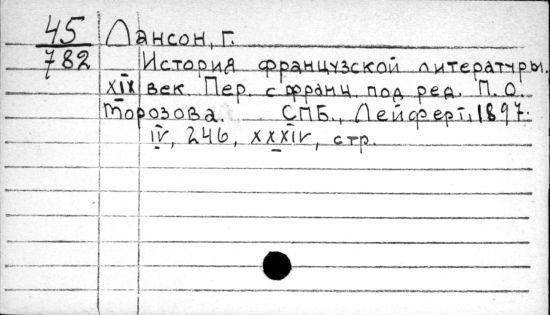 45 Лансон, Г.
782 История французской литературы.
XIX век. Пер. с франц. под ред. П. О.
Морозова. СПБ., Лейферт, 1897.
IV, 246, XXXIV, стр.